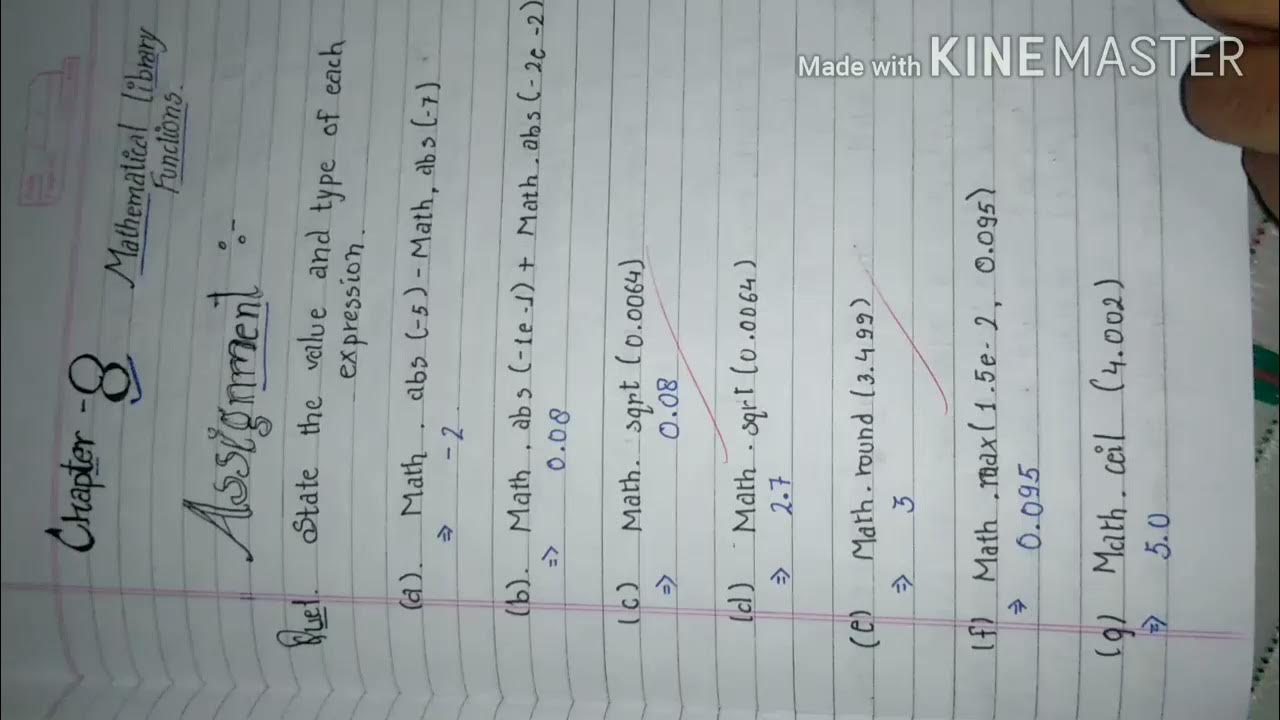 Made with KINEMASTER
Chapter - 8
Mathematical Library
Functions.
Assignment :-
Quet. State the value and type of each
expression.
(a). Math . abs (-5) - Math, abs (-7)
⇒ -2
(b). Math . abs (-1e -1) + Math . abs (-2e -2)
⇒ 0.08
(c) Math . sqrt (0.0064)
⇒ 0.08
(d) Math . sqrt (0.0064)
⇒ 2.7
(e) Math . round (3.499)
⇒ 3
(f) Math . max (1.5e- 2, 0.095)
⇒ 0.095
(g) Math . ceil (4.002)
⇒ 5.0